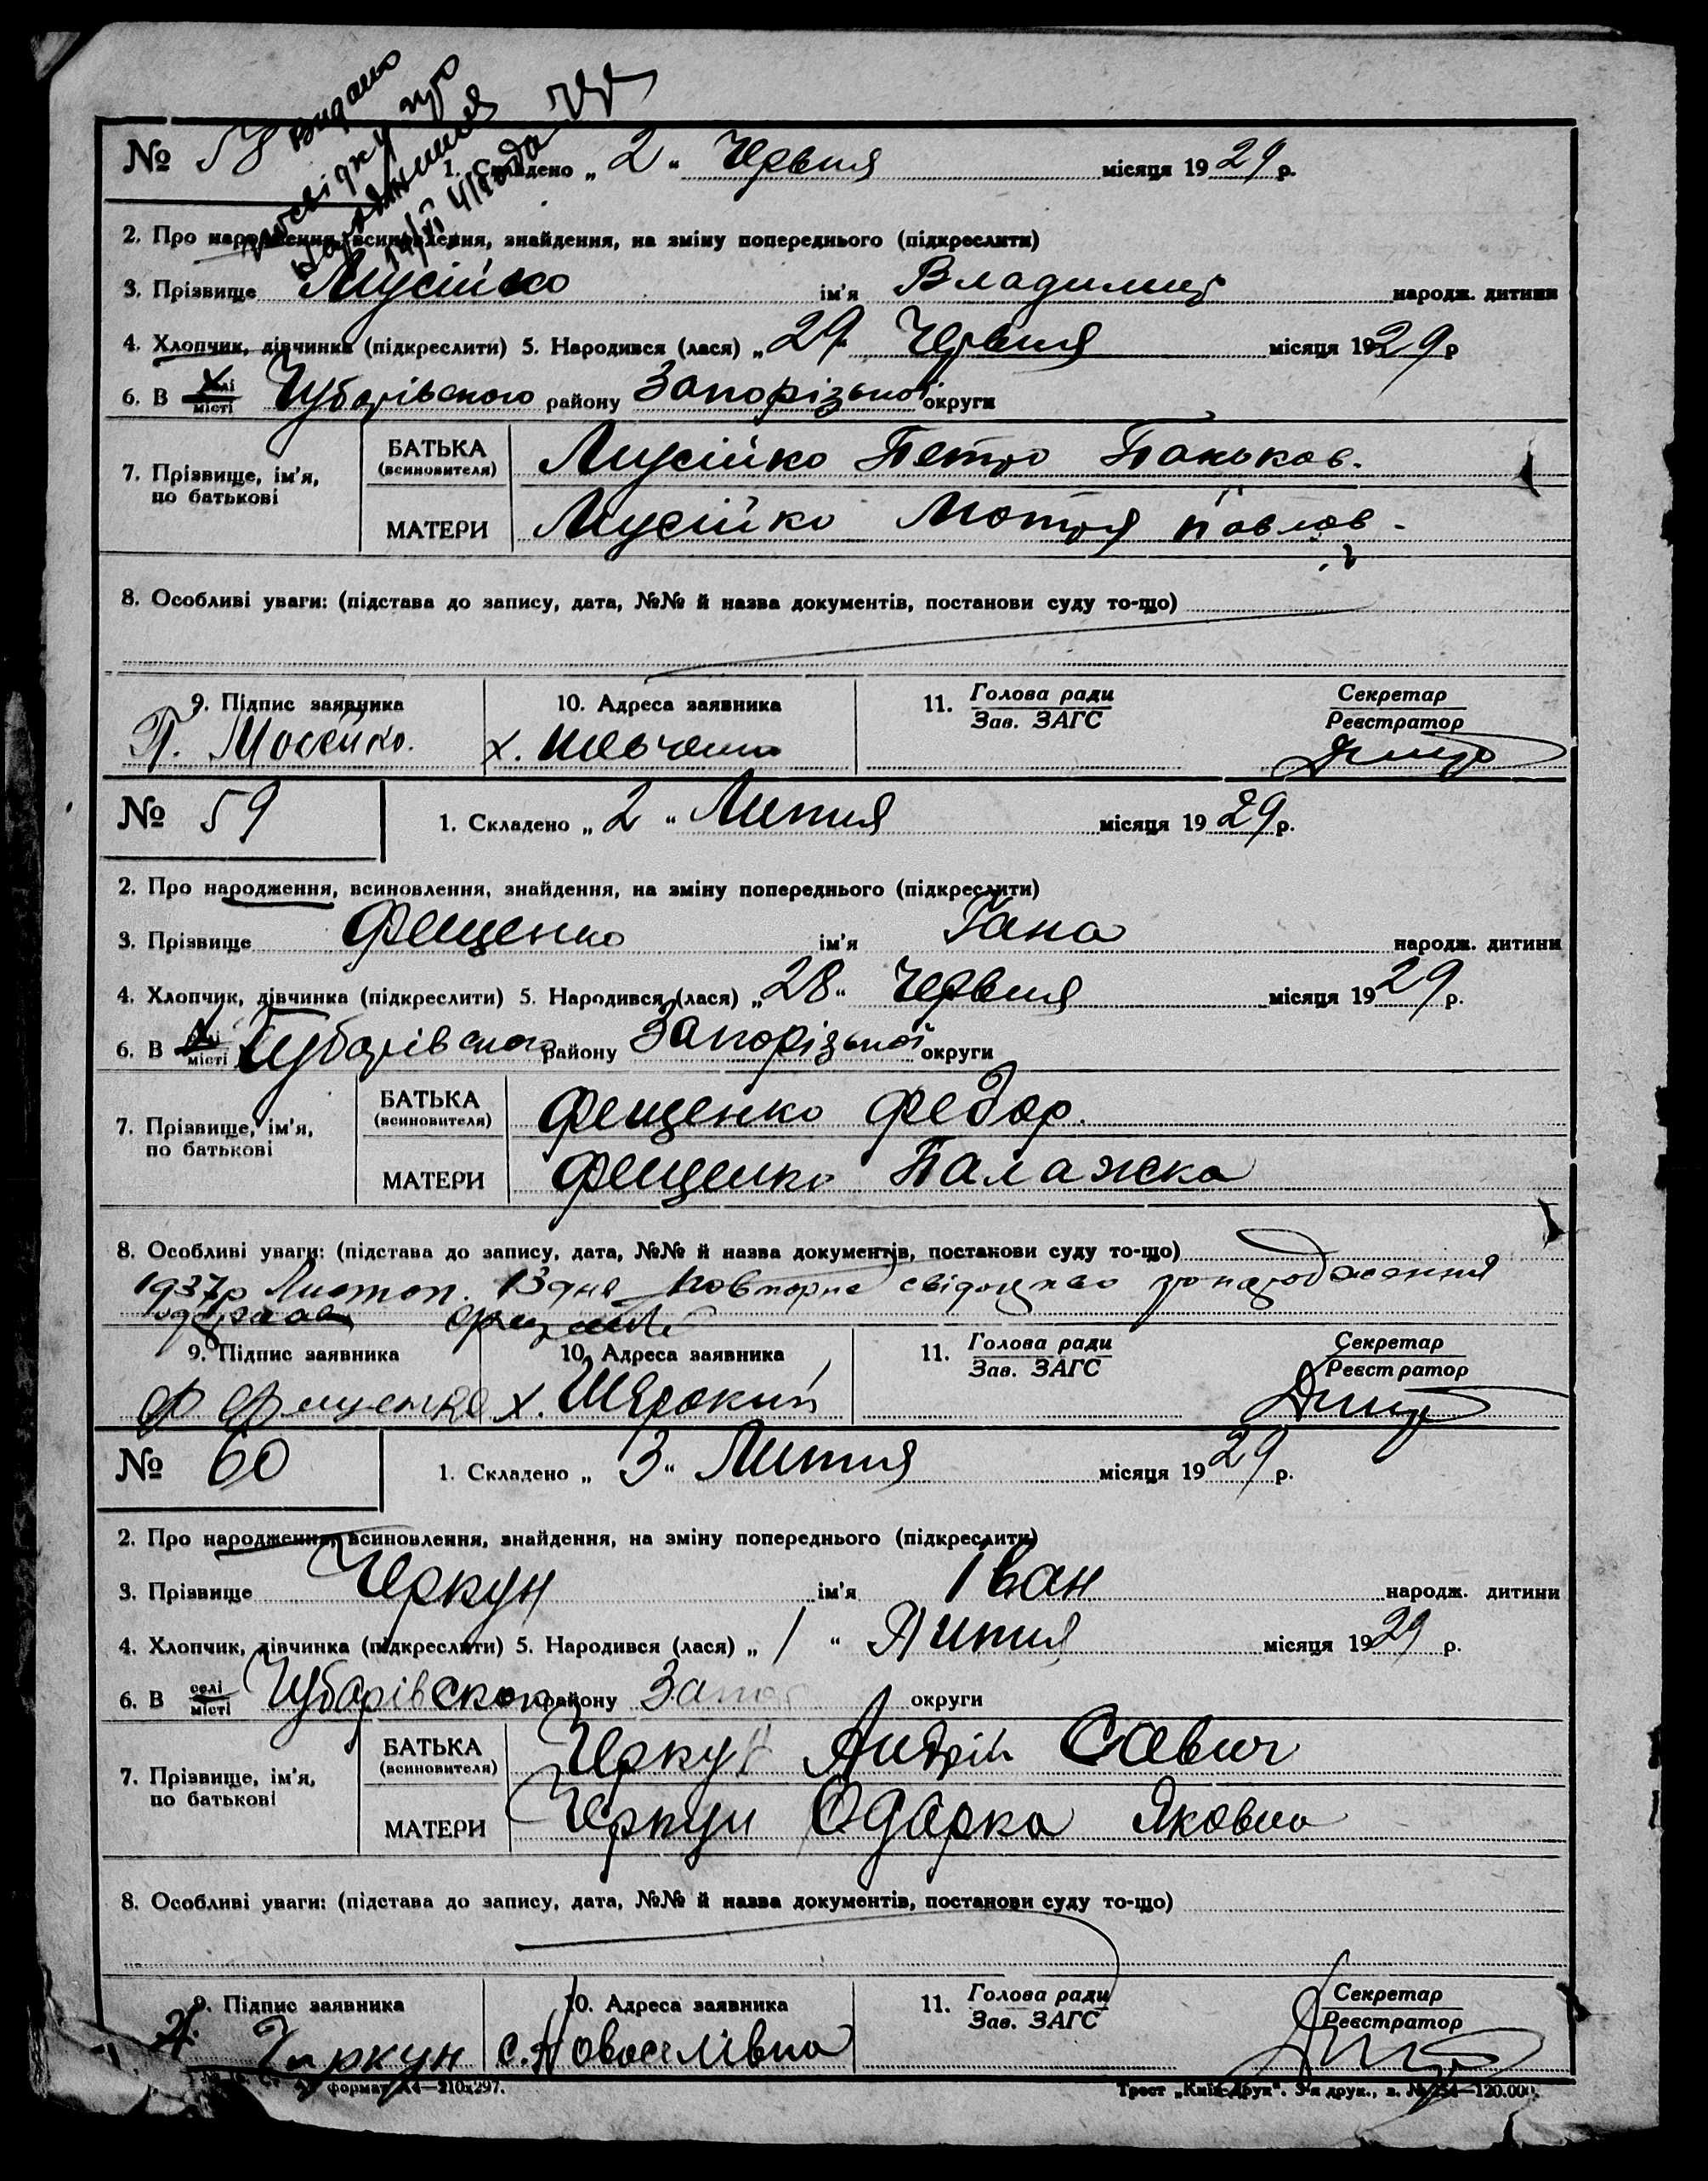 Видано
посвідку про
народження
№ 58 1. Складено „ 2 “ Червня місяця 1929 р.
2. Про народження, всиновлення, знайдення, на зміну попереднього (підкреслити)
3. Прізвище Мусійко ім'я Владимир народж. дитини
4. Хлопчик, дівчинка (підкреслити) 5. Народився (лася) „ 29 “ Червня місяця 1929 р
6. В селі місті Чубарівского району Запорізької округи
7. Прізвище, ім'я, по батькові
БАТЬКА (всиновителя) Мусійко Петро Паньков.
МАТЕРИ Мусійко Мотря Павлов.
8. Особливі уваги: (підстава до запису, дата, №№ й назва документів, постанови суду то-що)
9. Підпис заявника 10. Адреса заявника 11. Голова ради Зав. ЗАГС Секретар Реєстратор
П. Мосейко. х. Шевченко
№ 59 1. Складено „ 2 “ Липня місяця 1929 р.
2. Про народження, всиновлення, знайдення, на зміну попереднього (підкреслити)
3. Прізвище Фещенко ім'я Гана народж. дитини
4. Хлопчик, дівчинка (підкреслити) 5. Народився (лася) „ 28 “ Червня місяця 1929 р.
6. В селі місті Чубарівского району Запорізької округи
7. Прізвище, ім'я, по батькові
БАТЬКА (всиновителя) Фещенко Федор.
МАТЕРИ Фещенко Палажка
8. Особливі уваги: (підстава до запису, дата, №№ й назва документів, постанови суду то-що)
1937р Листоп. 13 дня повторне свідоцтво про народження
одержав
9. Підпис заявника 10. Адреса заявника 11. Голова ради Зав. ЗАГС Секретар Реєстратор
Ф Фещенко х. Широкий
№ 60 1. Складено „ 3 “ Липня місяця 1929 р.
2. Про народження, всиновлення, знайдення, на зміну попереднього (підкреслити)
3. Прізвище Черкун ім'я Іван народж. дитини
4. Хлопчик, дівчинка (підкреслити) 5. Народився (лася) „ 1 “ Липня місяця 1929 р.
6. В селі місті Чубарівского району Запор округи
7. Прізвище, ім'я, по батькові
БАТЬКА (всиновителя) Черкун Андрій Савич
МАТЕРИ Черкун Одарка Яковна
8. Особливі уваги: (підстава до запису, дата, №№ й назва документів, постанови суду то-що)
9. Підпис заявника 10. Адреса заявника 11. Голова ради Зав. ЗАГС Секретар Реєстратор
А. Чиркун с. Новоселівка
формат А4—210х297. Трест „Київ-Друк“. 9-а друк., з. № 254—120.000.